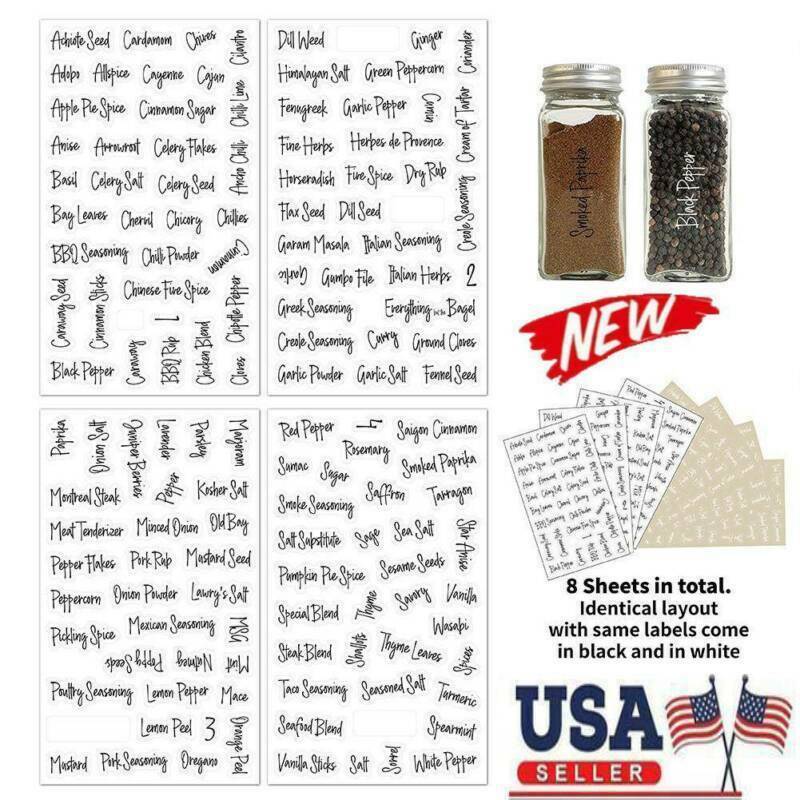 Achiote Seed Cardamom Chives Cilantro
Adobo Allspice Cayenne Cajun
Apple Pie Spice Cinnamon Sugar Chili Lime
Anise Arrowroot Celery Flakes Ancho Chili
Basil Celery Salt Celery Seed
Bay Leaves Chervil Chicory Chillies
BBQ Seasoning Chili Powder Cinnamon
Caraway Seed Cinnamon Sticks Chinese Five Spice Chipotle Pepper
Black Pepper Caraway BBQ Rub 1 Chicken Blend Cloves
Dill Weed Ginger Coriander
Himalayan Salt Green Peppercorn
Fenugreek Garlic Pepper Cumin Cream of Tartar
Fine Herbs Herbes de Provence
Horseradish Five Spice Dry Rub
Flax Seed Dill Seed Creole Seasoning
Garam Masala Italian Seasoning
Garlic Gumbo File Italian Herbs 2
Greek Seasoning Everything but the Bagel
Creole Seasoning Curry Ground Cloves
Garlic Powder Garlic Salt Fennel Seed
Paprika Onion Salt Juniper Berries Lavender Parsley Marjoram
Montreal Steak Pepper Kosher Salt
Meat Tenderizer Minced Onion Old Bay
Pepper Flakes Pork Rub Mustard Seed
Peppercorn Onion Powder Lawry's Salt
Pickling Spice Mexican Seasoning MSG
Poppy Seeds Nutmeg Mint
Poultry Seasoning Lemon Pepper Mace
Lemon Peel 3 Orange Peel
Mustard Pork Seasoning Oregano
Red Pepper 4 Saigon Cinnamon
Sumac Sugar Rosemary Smoked Paprika
Smoke Seasoning Saffron Tarragon
Salt Substitute Sage Sea Salt Star Anise
Pumpkin Pie Spice Sesame Seeds
Special Blend Thyme Savory Vanilla
Wasabi
Steak Blend Shallots Thyme Leaves Spices
Taco Seasoning Seasoned Salt Turmeric
Seafood Blend Spearmint
Vanilla Sticks Salt Sorrel White Pepper
Smoked Paprika
Black Pepper
NEW
8 Sheets in total.
Identical layout
with same labels come
in black and in white
USA
SELLER